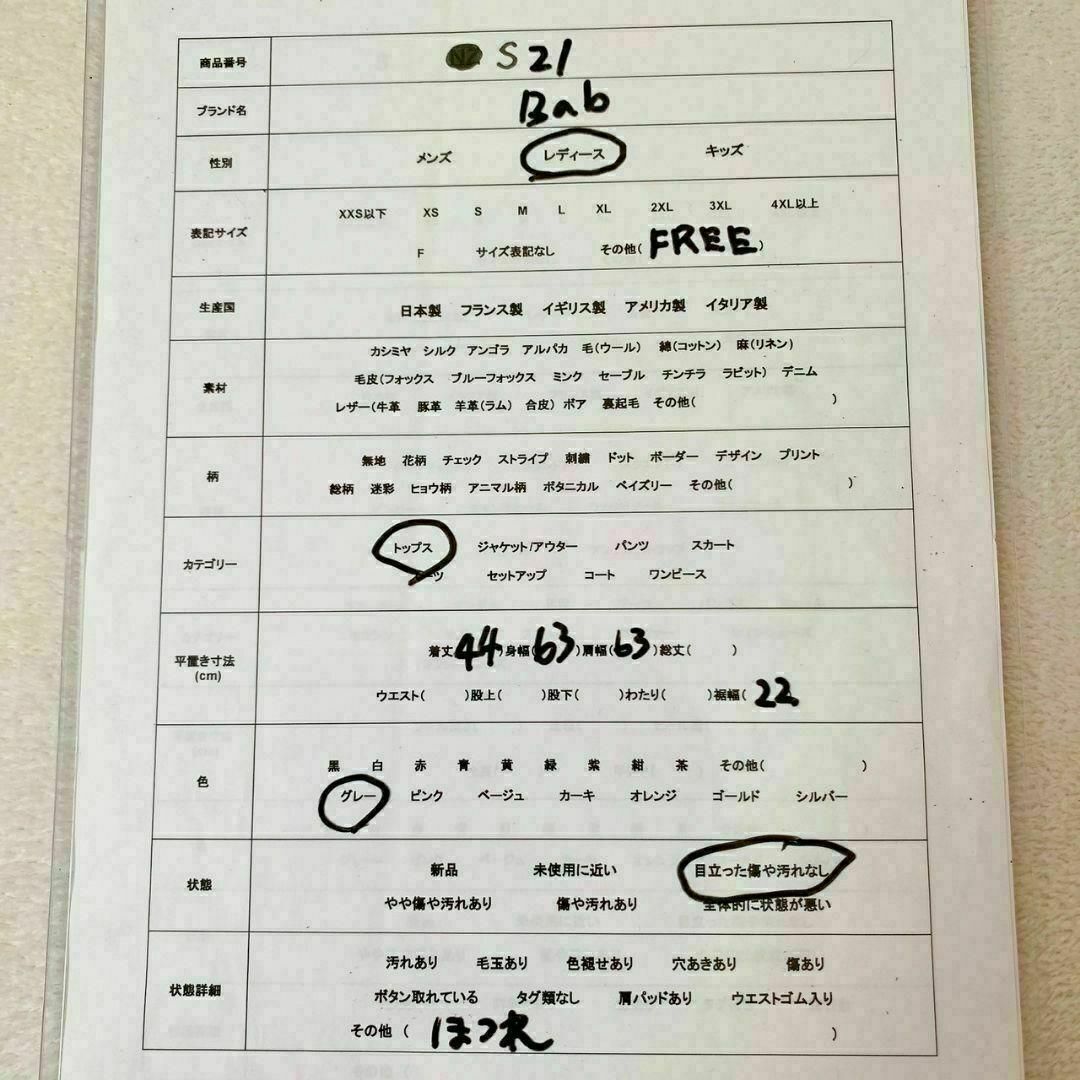 商品番号 NZ S21
ブランド名 Bab
性別 メンズ レディース キッズ
表記サイズ XXS以下 XS S M L XL 2XL 3XL 4XL以上
F サイズ表記なし その他(FREE)
生産国 日本製 フランス製 イギリス製 アメリカ製 イタリア製
カシミヤ シルク アンゴラ アルパカ 毛(ウール) 綿(コットン) 麻(リネン)
素材 毛皮(フォックス ブルーフォックス ミンク セーブル チンチラ ラビット) デニム
レザー(牛革 豚革 羊革(ラム) 合皮) ボア 裏起毛 その他( )
柄 無地 花柄 チェック ストライプ 刺繍 ドット ボーダー デザイン プリント
総柄 迷彩 ヒョウ柄 アニマル柄 ボタニカル ペイズリー その他( )
カテゴリー トップス ジャケット/アウター パンツ スカート
セットアップ コート ワンピース
平置き寸法 着丈(44)身幅(63)肩幅(63)総丈( )
(cm) ウエスト( )股上( )股下( )わたり( )裾幅(22
色 黒 白 赤 青 黄 緑 紫 紺 茶 その他( )
グレー ピンク ベージュ カーキ オレンジ ゴールド シルバー
状態 新品 未使用に近い 目立った傷や汚れなし
やや傷や汚れあり 傷や汚れあり 全体的に状態が悪い
状態詳細 汚れあり 毛玉あり 色褪せあり 穴あきあり 傷あり
ボタン取れている タグ類なし 肩パッドあり ウエストゴム入り
その他 ( ほつれ )